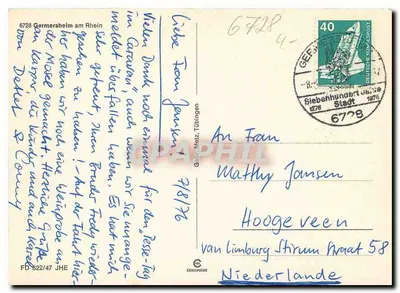 6728 Germersheim am Rhein
6728
4,-
40
DEUTSCHE BUNDESPOST
Siebenhundert Jahre
Stadt
1276 1976
6728
7/8/76
Liebe Frau Jansen!
Vielen Dank noch einmal für den Tag
im Caravan, auch wenn wir Sie unange-
meldet überfallen haben. Es hat mich
sehr gefreut, Ihren Bruder Frodo wieder-
gesehen zu haben! - Auf der Fahrt hier-
her haben wir noch eine Weinprobe an
der Mosel gemacht. Herzliche Grüße
an Kaspar, die Kinder und auch Karel
von Detlef & Conny
FD 622/47 JHE
An Frau
Matthy Jansen
Hoogeveen
van Limburg Stirum Straat 58
Niederlande